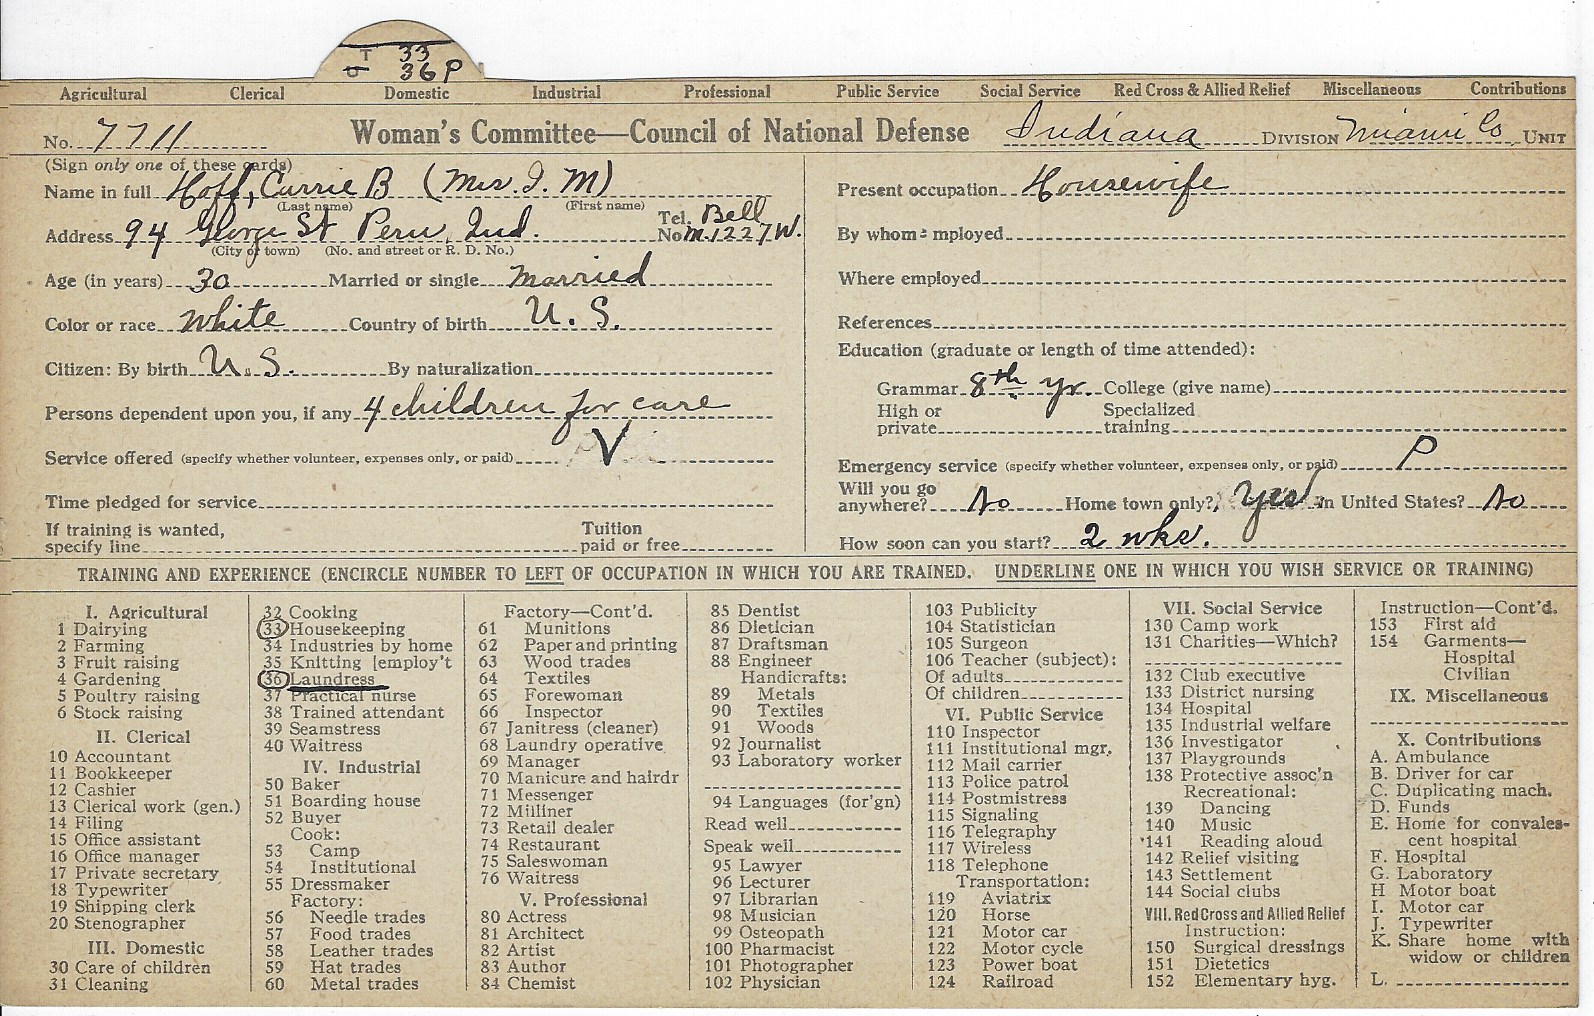 T 33
36 P
Agricultural Clerical Domestic Industrial Professional Public Service Social Service Red Cross & Allied Relief Miscellaneous Contributions
No. 7711 Woman's Committee—Council of National Defense Indiana DIVISION Miami Co UNIT
(Sign only one of these cards)
Name in full Hoff, Currie B (Mrs. I. M)
(Last name) (First name)
Address 94 George St Peru, Ind. Tel. No. Bell M.1227W.
(City or town) (No. and street or R. D. No.)
Age (in years) 30 Married or single Married
Color or race White Country of birth U. S.
Citizen: By birth U. S. By naturalization
Persons dependent upon you, if any 4 children for care
Service offered (specify whether volunteer, expenses only, or paid) V
Time pledged for service
If training is wanted, specify line Tuition paid or free
Present occupation Housewife
By whom employed
Where employed
References
Education (graduate or length of time attended):
Grammar 8th yr. College (give name)
High or private Specialized training
Emergency service (specify whether volunteer, expenses only, or paid) P
Will you go anywhere? No Home town only? Yes In United States? No
How soon can you start? 2 wks.
TRAINING AND EXPERIENCE (ENCIRCLE NUMBER TO LEFT OF OCCUPATION IN WHICH YOU ARE TRAINED. UNDERLINE ONE IN WHICH YOU WISH SERVICE OR TRAINING)
I. Agricultural
1 Dairying
2 Farming
3 Fruit raising
4 Gardening
5 Poultry raising
6 Stock raising
II. Clerical
10 Accountant
11 Bookkeeper
12 Cashier
13 Clerical work (gen.)
14 Filing
15 Office assistant
16 Office manager
17 Private secretary
18 Typewriter
19 Shipping clerk
20 Stenographer
III. Domestic
30 Care of children
31 Cleaning
32 Cooking
33 Housekeeping
34 Industries by home
35 Knitting [employ't
36 Laundress
37 Practical nurse
38 Trained attendant
39 Seamstress
40 Waitress
IV. Industrial
50 Baker
51 Boarding house
52 Buyer
Cook:
53 Camp
54 Institutional
55 Dressmaker
Factory:
56 Needle trades
57 Food trades
58 Leather trades
59 Hat trades
60 Metal trades
Factory—Cont'd.
61 Munitions
62 Paper and printing
63 Wood trades
64 Textiles
65 Forewoman
66 Inspector
67 Janitress (cleaner)
68 Laundry operative
69 Manager
70 Manicure and hairdr
71 Messenger
72 Milliner
73 Retail dealer
74 Restaurant
75 Saleswoman
76 Waitress
V. Professional
80 Actress
81 Architect
82 Artist
83 Author
84 Chemist
85 Dentist
86 Dietician
87 Draftsman
88 Engineer
Handicrafts:
89 Metals
90 Textiles
91 Woods
92 Journalist
93 Laboratory worker
94 Languages (for'gn)
Read well
Speak well
95 Lawyer
96 Lecturer
97 Librarian
98 Musician
99 Osteopath
100 Pharmacist
101 Photographer
102 Physician
103 Publicity
104 Statistician
105 Surgeon
106 Teacher (subject):
Of adults
Of children
VI. Public Service
110 Inspector
111 Institutional mgr.
112 Mail carrier
113 Police patrol
114 Postmistress
115 Signaling
116 Telegraphy
117 Wireless
118 Telephone
Transportation:
119 Aviatrix
120 Horse
121 Motor car
122 Motor cycle
123 Power boat
124 Railroad
VII. Social Service
130 Camp work
131 Charities—Which?
132 Club executive
133 District nursing
134 Hospital
135 Industrial welfare
136 Investigator
137 Playgrounds
138 Protective assoc'n
Recreational:
139 Dancing
140 Music
141 Reading aloud
142 Relief visiting
143 Settlement
144 Social clubs
VIII. Red Cross and Allied Relief
Instruction:
150 Surgical dressings
151 Dietetics
152 Elementary hyg.
Instruction—Cont'd.
153 First aid
154 Garments—
Hospital
Civilian
IX. Miscellaneous
X. Contributions
A. Ambulance
B. Driver for car
C. Duplicating mach.
D. Funds
E. Home for convales-
cent hospital
F. Hospital
G. Laboratory
H Motor boat
I. Motor car
J. Typewriter
K. Share home with
widow or children
L.